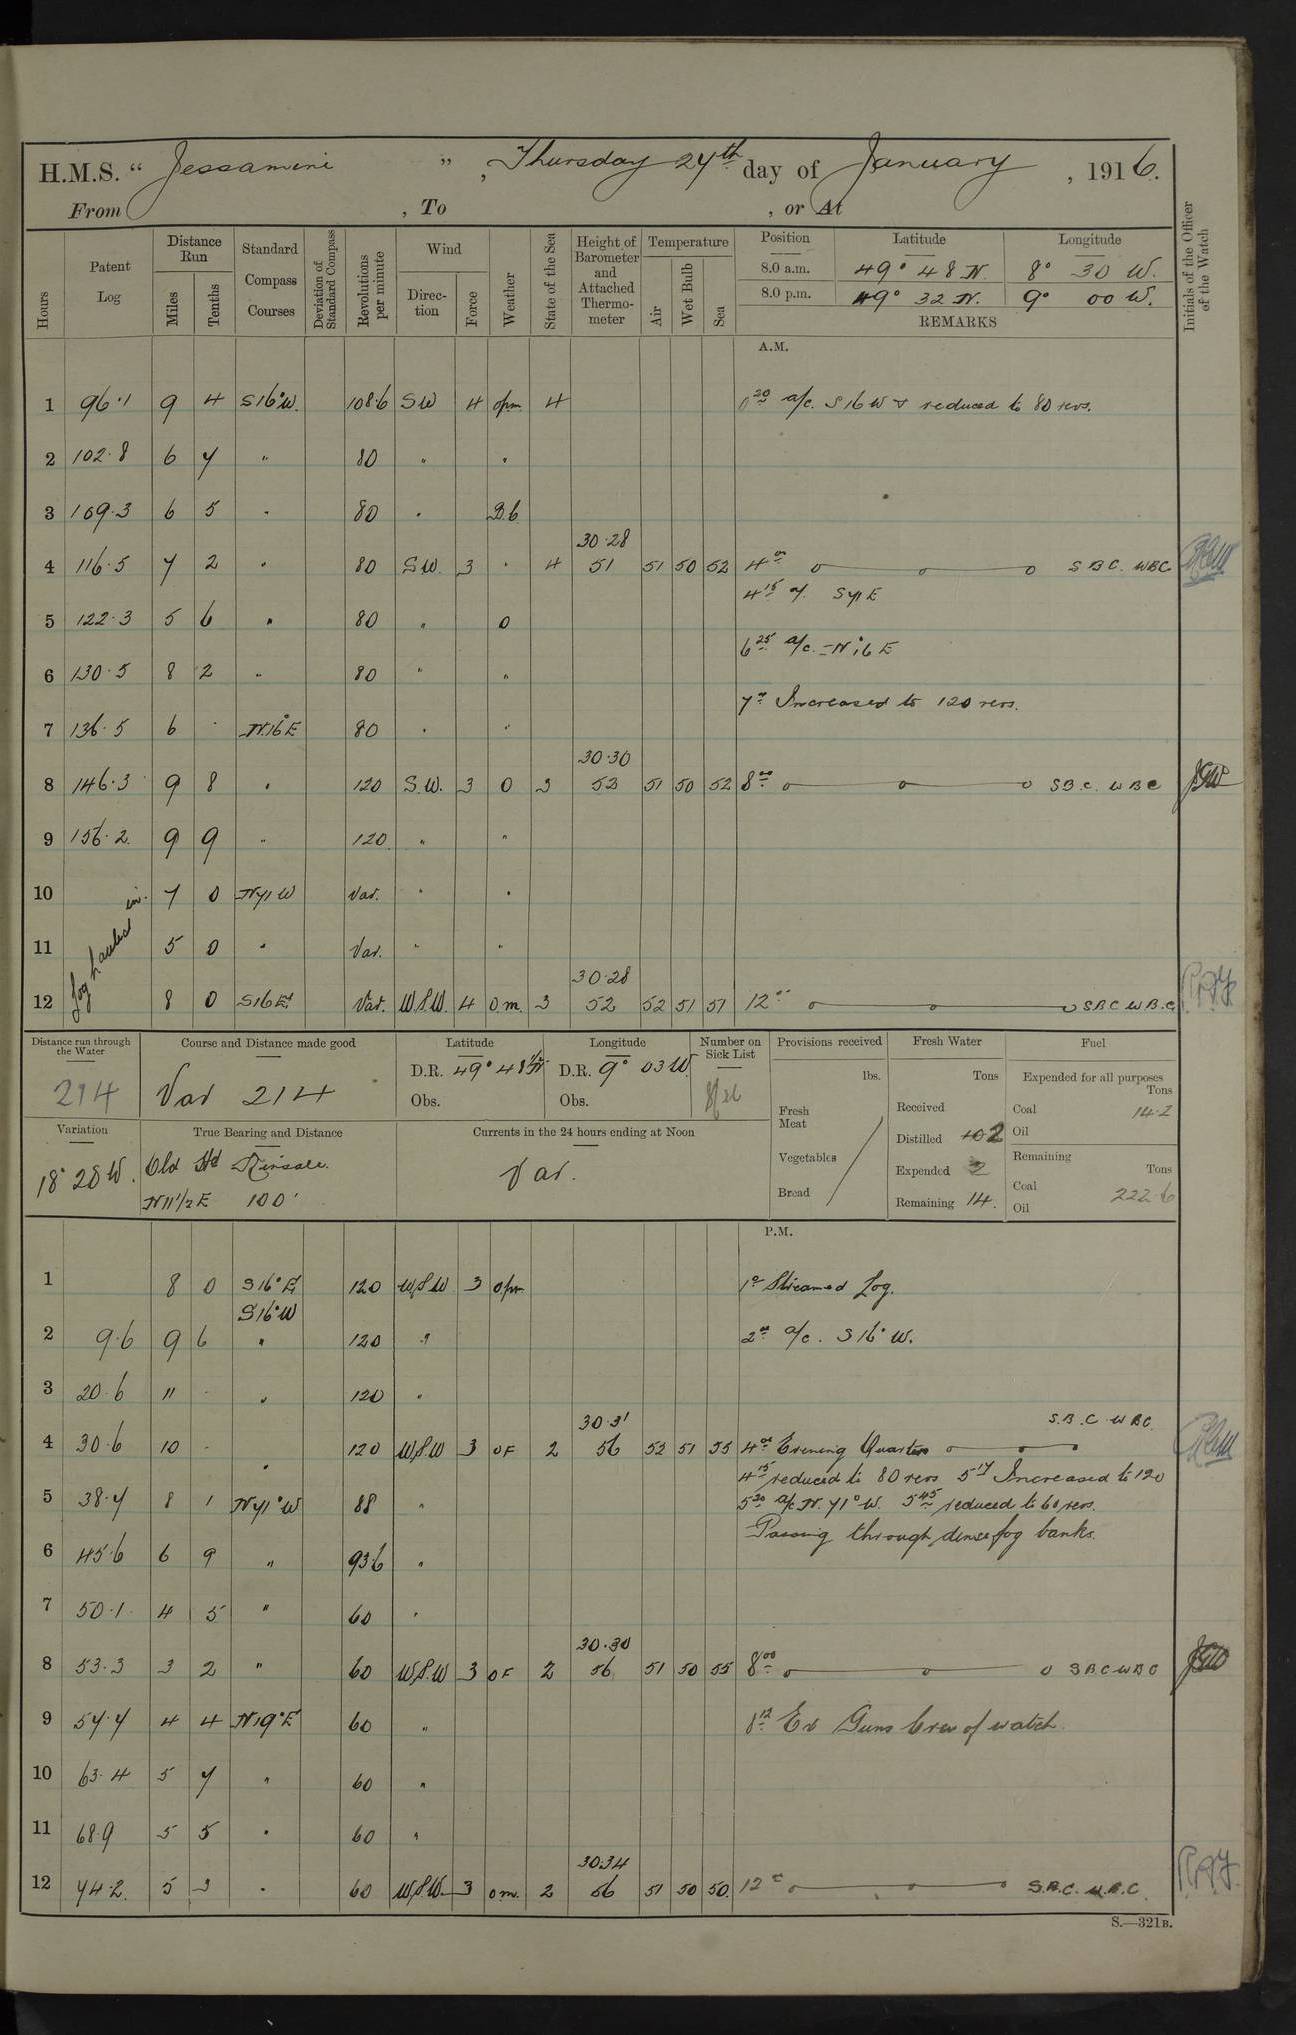 H.M.S. “ Jessamine ”, Thursday 27th day of January, 1916.
From , To , or At
Hours
Patent Log
Distance Run
Miles
Tenths
Standard Compass Courses
Deviation of Standard Compass
Revolutions per minute
Wind
Direction
Force
Weather
State of the Sea
Height of Barometer and Attached Thermometer
Temperature
Air
Wet Bulb
Sea
Position Latitude Longitude
8.0 a.m. 49° 48 N. 8° 30 W.
8.0 p.m. 49° 32 N. 9° 00 W.
REMARKS
Initials of the Officer of the Watch
A.M.
1 96·1 9 4 S16°W. 108·6 SW 4 opm 4 0 20 a/c. S16W & reduced to 80 revs.
2 102·8 6 7 " 80 " "
3 109·3 6 5 " 80 " B.C.
30·28
4 116·5 7 2 " 80 S.W. 3 " 4 51 51 50 52 4 00 S.B.C. W.B.C.
4 15 a/c S71E
5 122·3 5 6 " 80 " O
6 25 a/c. N16E
6 130·5 8 2 " 80 " "
7 00 Increased to 120 revs.
7 136·5 6 · N.16°E 80 " "
30·30
8 146·3 9 8 " 120 S.W. 3 O 3 52 51 50 52 8 00 S.B.C. W.B.C
9 156·2 9 9 " 120 " "
10 7 0 N71W Var. " "
11 5 0 " Var. " "
log hauled in.
30·28
12 8 0 S16E Var. W.S.W. 4 O.m. 3 52 52 51 51 12 00 S.B.C W.B.C
Distance run through the Water
214
Course and Distance made good
Var 214
Latitude
D.R. 49° 48½N
Obs.
Longitude
D.R. 9° 03W.
Obs.
Number on Sick List
Provisions received
lbs.
Fresh Meat
Vegetables
Bread
Fresh Water
Tons
Received
Distilled 2
Expended 2
Remaining 14.
Fuel
Expended for all purposes
Tons
Coal 14·2
Oil
Remaining
Tons
Coal 222·6
Oil
Variation
18° 20W.
True Bearing and Distance
Old Hd Kinsale.
N11½E 100'
Currents in the 24 hours ending at Noon
Var.
P.M.
1 8 0 S16°E 120 W.S.W 3 opm 1 00 Streamed Log.
S16°W
2 9·6 9 6 " 120 " 2 00 a/c. S16° W.
3 20·6 11 · " 120 "
30·31 S.B.C W.B.C
4 30·6 10 · " 120 W.S.W 3 OF 2 56 52 51 55 4 00 Evening Quarters
4 15 reduced to 80 revs 5 17 Increased to 120
5 38·7 8 1 N71°W 88 " 5 30 a/c N.71° W. 5 45 reduced to 60 revs.
Passing through dense fog banks.
6 45·6 6 9 " 93·6 "
7 50·1 4 5 " 60 "
30·30
8 53·3 3 2 " 60 W.S.W 3 OF 2 56 51 50 55 8 00 S.B.C W.B.C
9 57·7 4 4 N19°E 60 " 8 12 Ex Guns Crew of watch.
10 63·4 5 7 " 60 "
11 68·9 5 5 " 60 "
30·34
12 74·2 5 3 " 60 W.S.W. 3 o m. 2 56 51 50 50 12 00 S.B.C. W.B.C.
S.—321B.